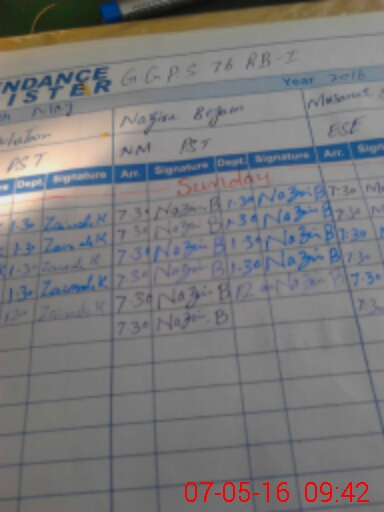 NDANCE GGPS 76 RB-I
ISTER Year 2016
May Nazira Begum
PST NM PST ESE
Dept. Signature Arr. Signature Dept. Signature Arr. Signature
Sunday
1:30 Zainab K 7:30 Nazir B 1:30 Nazir B 7:30
1:30 Zainab K 7:30 Nazir B 1:30 Nazir B 7:30
1:30 Zainab K 7:30 Nazir B 1:30 Nazir B 7:30
1:30 Zainab K 7:30 Nazir B 1:30 Nazir B 7:30
1:30 Zainab K 7:30 Nazir B 12 Nazir B 7:30
7:30 Nazir B 7:30
07-05-16 09:42